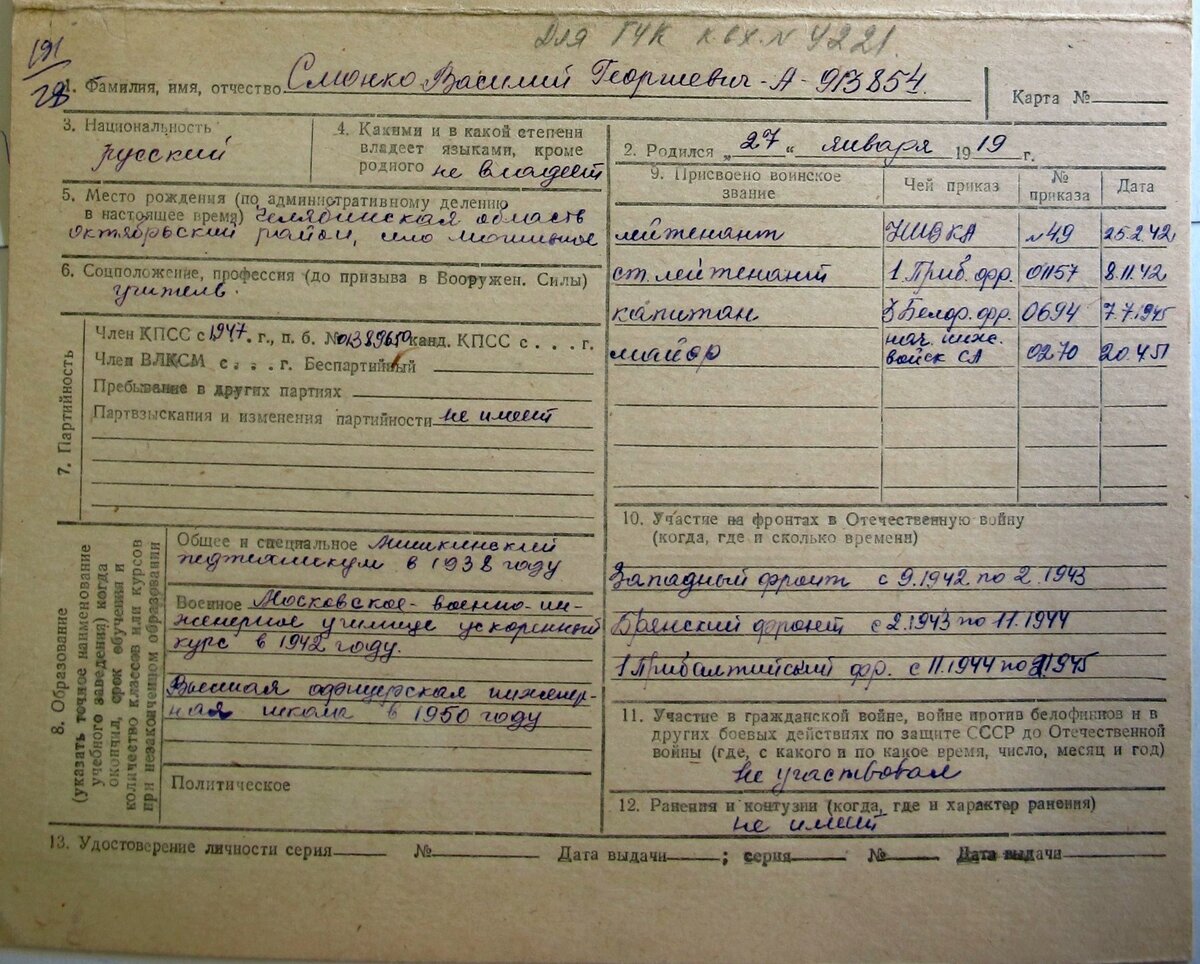 Для ГУК к вх. N 4221.
191
28
1. Фамилия, имя, отчество Смонко Василий Георгиевич - А - 913854.
Карта №
3. Национальность
русский
4. Какими и в какой степени
владеет языками, кроме
родного не владеет
2. Родился „27“ января 1919 г.
5. Место рождения (по административному делению
в настоящее время) Челябинская область
октябрьский район, село Могильное
6. Соцположение, профессия (до призыва в Вооружен. Силы)
учитель.
7. Партийность
Член КПСС с 1947 г., п. б. № 01389650 канд. КПСС с . . . г.
Член ВЛКСМ с . . . г. Беспартийный
Пребывание в других партиях
Партвзыскания и изменения партийности не имеет
8. Образование
(указать точное наименование
учебного заведения) когда
окончил, срок обучения и
количество классов или курсов
при незаконченном образовании
Общее и специальное Мишкинский
педтехникум в 1938 году
Военное Московское - военно-ин-
женерное училище ускоренный
курс в 1942 году.
Высшая офицерская инженер-
ная школа в 1950 году
Политическое
9. Присвоено воинское
звание
Чей приказ
№
приказа
Дата
лейтенант НИВКА №49 25.2.42
ст. лейтенант 1 Приб. фр. 01157 8.11.42
капитан 3 Белор. фр. 0694 7.7.1945
майор нач. инж.
войск СА 0270 20.4.51
10. Участие на фронтах в Отечественную войну
(когда, где и сколько времени)
Западный фронт с 9.1942 по 2.1943
Брянский фронт с 2.1943 по 11.1944
1 Прибалтийский фр. с 11.1944 по 1945
11. Участие в гражданской войне, войне против белофиннов и в
других боевых действиях по защите СССР до Отечественной
войны (где, с какого и по какое время, число, месяц и год)
не участвовал
12. Ранения и контузии (когда, где и характер ранения)
не имеет
13. Удостоверение личности серия № Дата выдачи ; серия № Дата выдачи